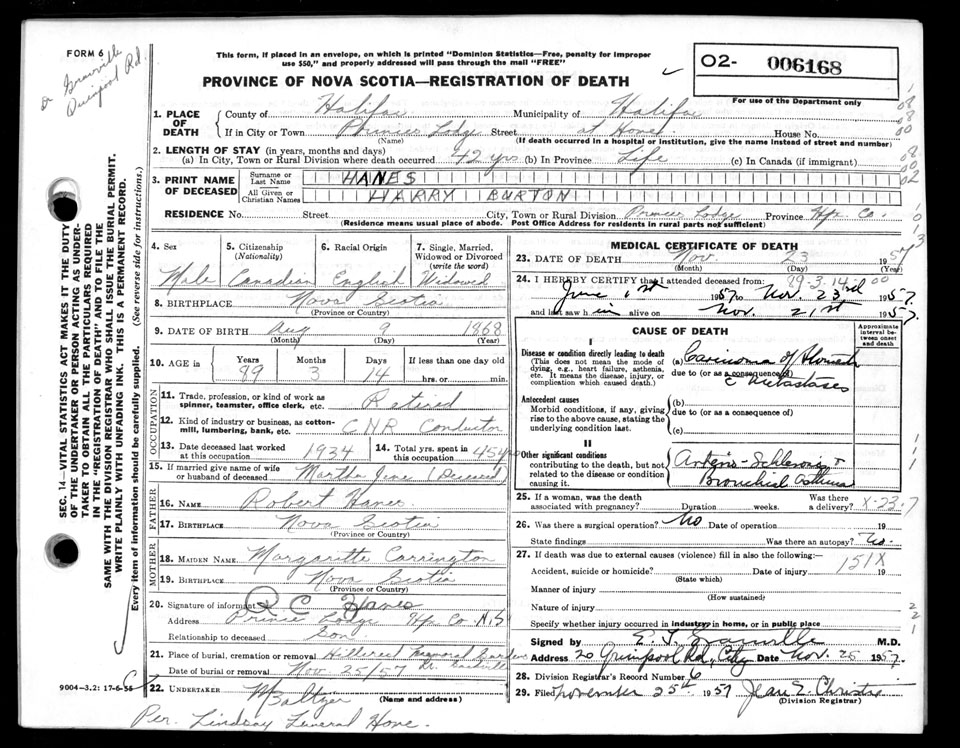 FORM 6
Dr Granville
Quinpool Rd.
This form, if placed in an envelope, on which is printed "Dominion Statistics—Free, penalty for improper
use $50," and properly addressed will pass through the mail "FREE"
PROVINCE OF NOVA SCOTIA—REGISTRATION OF DEATH
O2- 006168
For use of the Department only
1. PLACE OF DEATH
County of Halifax Municipality of Halifax
If in City or Town Princes Lodge Street at Home House No.
(Name) (If death occurred in a hospital or institution, give the name instead of street and number)
2. LENGTH OF STAY (in years, months and days)
(a) In City, Town or Rural Division where death occurred 42 yrs (b) In Province Life (c) In Canada (if immigrant)
3. PRINT NAME OF DECEASED
Surname or Last Name HANES
All Given or Christian Names HARRY BURTON
RESIDENCE No. Street City, Town or Rural Division Princes Lodge Province Hfx Co.
(Residence means usual place of abode. Post Office Address for residents in rural parts not sufficient)
4. Sex Male
5. Citizenship (Nationality) Canadian
6. Racial Origin English
7. Single, Married, Widowed or Divorced (write the word) Widowed
8. BIRTHPLACE Nova Scotia
(Province or Country)
9. DATE OF BIRTH Aug 9 1868
(Month) (Day) (Year)
10. AGE in Years Months Days If less than one day old
89 3 14 hrs. or min.
OCCUPATION
11. Trade, profession, or kind of work as spinner, teamster, office clerk, etc. Retired
12. Kind of industry or business, as cotton-mill, lumbering, bank, etc. CNR Conductor
13. Date deceased last worked at this occupation 1934
14. Total yrs. spent in this occupation 45
15. If married give name of wife or husband of deceased Martha Jane (Deceased)
FATHER
16. NAME Robert Hanes
17. BIRTHPLACE Nova Scotia
(Province or Country)
MOTHER
18. MAIDEN NAME Margarette Carrington
19. BIRTHPLACE Nova Scotia
(Province or Country)
20. Signature of informant R C Hanes
Address Prince Lodge Hfx Co N.S
Relationship to deceased Son
21. Place of burial, cremation or removal Hillcrest Memorial Gardens
Date of burial or removal Nov 25/57
22. UNDERTAKER M Baltzer
(Name and address)
Per. Lindsay Funeral Home.
9004—3.2: 17-6-55
MEDICAL CERTIFICATE OF DEATH
23. DATE OF DEATH Nov. 23 1957
(Month) (Day) (Year)
24. I HEREBY CERTIFY that I attended deceased from: 89-3-14 00
June 1st 1957 to Nov. 23rd 1957
and last saw him alive on Nov. 21st 1957.
CAUSE OF DEATH
Approximate interval between onset and death
I
Disease or condition directly leading to death
(This does not mean the mode of dying, e.g., heart failure, asthenia, etc. It means the disease, injury, or complication which caused death.)
(a) Carcinoma of Stomach
due to (or as a consequence of)
c Metastases
Antecedent causes
Morbid conditions, if any, giving rise to the above cause, stating the underlying condition last.
(b)
due to (or as a consequence of)
(c)
II
Other significant conditions
contributing to the death, but not related to the disease or condition causing it.
Arterio-Schlerosis +
Bronchial Asthma
25. If a woman, was the death associated with pregnancy? Duration weeks. Was there a delivery? X-23-7
26. Was there a surgical operation? No Date of operation 19
State findings Was there an autopsy? No.
27. If death was due to external causes (violence) fill in also the following:—
151X
Accident, suicide or homicide? Date of injury 19
(State which)
Manner of injury
(How sustained)
Nature of injury
Specify whether injury occurred in industry, in home, or in public place
Signed by E. F. Granville M.D.
Address 20 Quinpool Rd, City Date Nov. 25 1957.
28. Division Registrar's Record Number 6
29. Filed November 25th 1957 Jean E. Christie
(Division Registrar)
SEC. 14—VITAL STATISTICS ACT MAKES IT THE DUTY
OF THE UNDERTAKER OR PERSON ACTING AS UNDER-
TAKER TO OBTAIN ALL THE PARTICULARS REQUIRED
IN THE "REGISTRATION OF DEATH" AND TO FILE THE
SAME WITH THE DIVISION REGISTRAR WHO SHALL ISSUE THE BURIAL PERMIT.
WRITE PLAINLY WITH UNFADING INK. THIS IS A PERMANENT RECORD.
Every item of information should be carefully supplied. (See reverse side for instructions.)